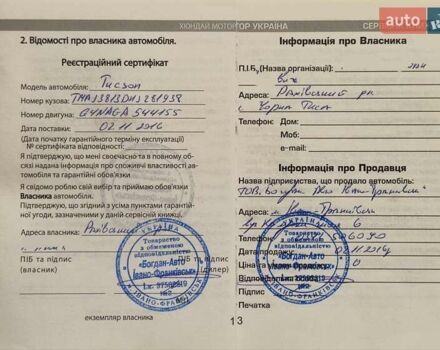 ХЮНДАЙ МОТОР УКРАЇНА
СЕР
auto
2. Відомості про власника автомобіля.
Реєстраційний сертифікат
Модель автомобіля: Tucson
Номер кузова:
Номер двигуна: G4NAGA544155
Дата поставки: 02.11.2016
(Дата початку гарантійного терміну експлуатації)
№ сертифіката відповідності:
Я підтверджую, що мені своєчасно та в повному об-
сязі надана інформація про споживчі властивості авто-
мобіля та гарантійні обов'язки
Я свідомо роблю свій вибір та приймаю обов'язки
Власника автомобіля.
Підтверджую, що згідний з усіма пунктами гарантій-
ної угоди, зазначеними у даній сервісній книжці.
Адреса власника:
ПІБ та підпис
(власник)
ПІБ та підпис
(дилер)
УКРАЇНА
Товариство
з обмеженою
відповідальністю
«Богдан-Авто
Івано-Франківськ»
екземпляр власника
Інформація про Власника
П.І.Б. (Назва організації):
Адреса: Рахівський рн
с. Чорна Тиса
Телефон: Дом.
Моб.
e-mail:
Інформація про Продавця
Назва підприємства, що продало автомобіль:
ТОВ. Богдан Авто Івано-Франківськ
Адреса:
Телефон:
Дата продажу: 02.11.2016
Ціна
Відповідальна
Підпис
Печатка
УКРАЇНА
Товариство
з обмеженою
відповідальністю
«Богдан-Авто
Івано-Франківськ»
13